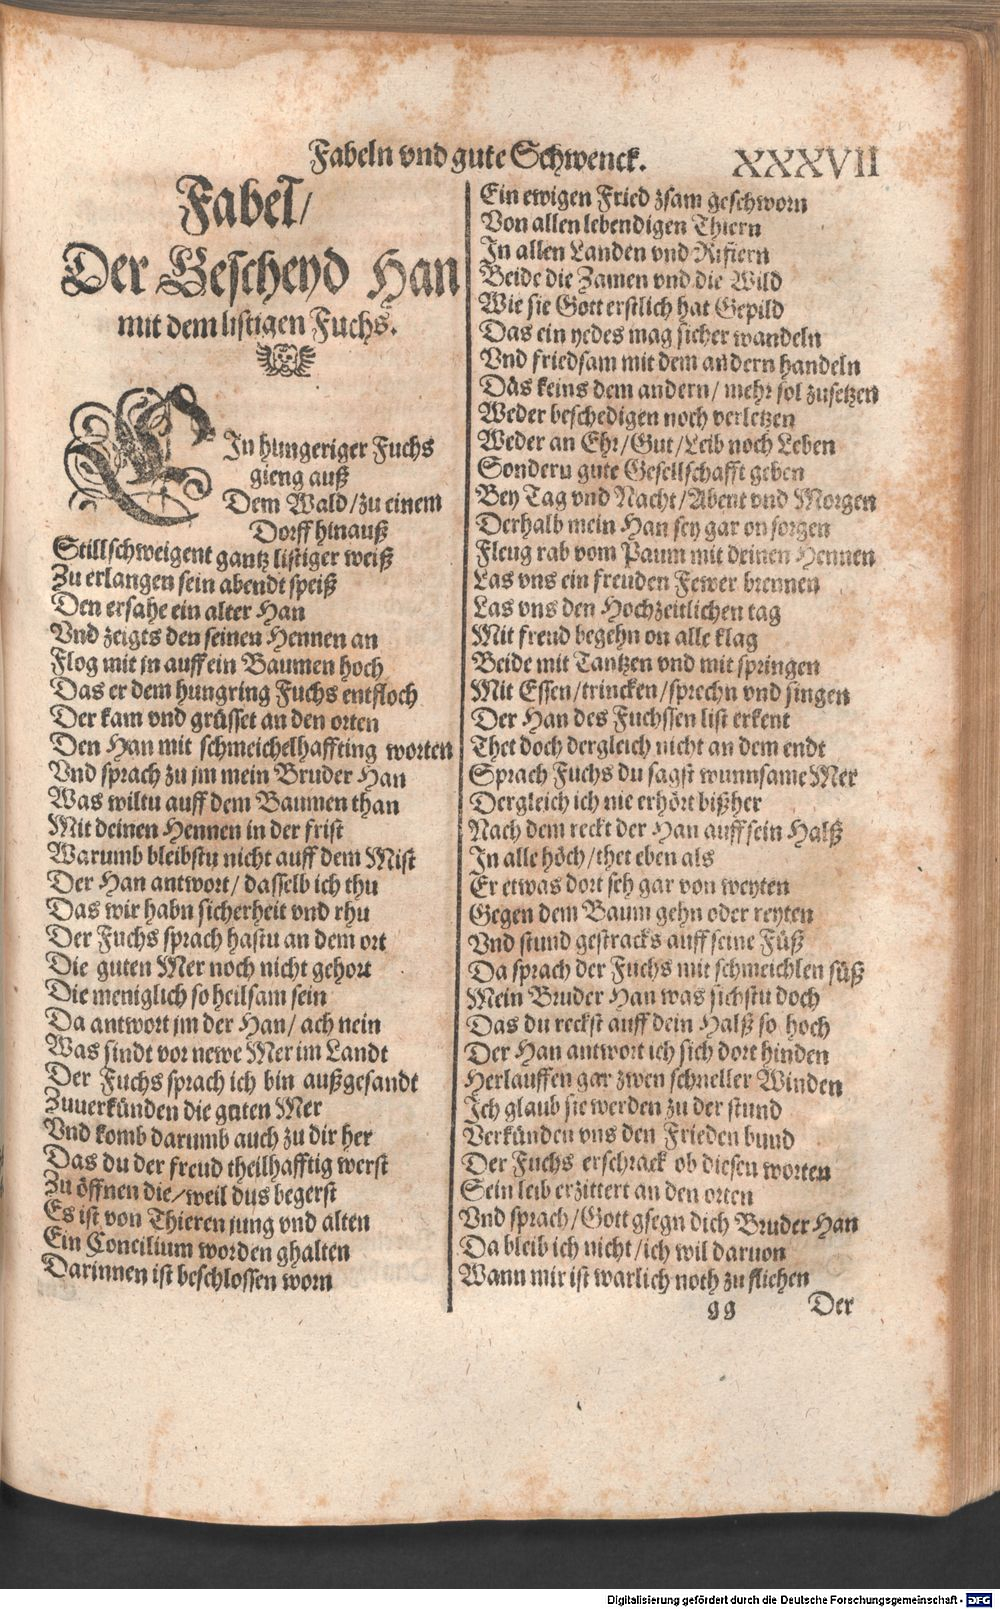 Fabeln vnd gute Schwenck. XXXVII
Fabel/
Der Gescheyd Han
mit dem listigen Fuchs.
EIn hungeriger Fuchs
gieng auß
Dem Wald/zu einem
Dorff hinauß
Stillschweigent gantz listiger weiß
Zu erlangen sein abendt speiß
Den ersahe ein alter Han
Vnd zeigts den seinen Hennen an
Flog mit jn auff ein Baumen hoch
Das er dem hungring Fuchs entfloch
Der kam vnd grüsset an den orten
Den Han mit schmeichelhaffting worten
Vnd sprach zu jm mein Bruder Han
Was wiltu auff dem Baumen than
Mit deinen Hennen in der frist
Warumb bleibstu nicht auff dem Mist
Der Han antwort/ dasselb ich thu
Das wir habn sicherheit vnd rhu
Der Fuchs sprach hastu an dem ort
Die guten Mer noch nicht gehort
Die meniglich so heilsam sein
Da antwort jm der Han/ ach nein
Was sindt vor newe Mer im Landt
Der Fuchs sprach ich bin außgesandt
Zuuerkünden die guten Mer
Vnd komb darumb auch zu dir her
Das du der freud theilhafftig werst
Zu öffnen die/weil dus begerst
Es ist von Thieren jung vnd alten
Ein Concilium worden ghalten
Darinnen ist beschlossen worn
Ein ewigen Fried zsam geschworn
Von allen lebendigen Thiern
In allen Landen vnd Rifiern
Beide die Zamen vnd die Wild
Wie sie Gott erstlich hat Gepild
Das ein yedes mag sicher wandeln
Vnd friedsam mit dem andern handeln
Das keins dem andern/ mehr sol zusetzen
Weder beschedigen noch verletzen
Weder an Ehr/Gut/Leib noch Leben
Sondern gute Gesellschafft geben
Bey Tag vnd Nacht/Abent vnd Morgen
Derhalb mein Han sey gar on sorgen
Fleug rab vom Paum mit deinen Hennen
Las vns ein freuden Fewer brennen
Las vns den Hochzeitlichen tag
Mit freud begehn on alle klag
Beide mit Tantzen vnd mit springen
Mit Essen/trincken/sprechn vnd singen
Der Han des Fuchssen list erkent
Thet doch dergleich nicht an dem endt
Sprach Fuchs du sagst wunnsame Mer
Dergleich ich nie erhört bißher
Nach dem reckt der Han auff sein Halß
In alle höch/thet eben als
Er etwas dort seh gar von weyten
Gegen dem Baum gehn oder reyten
Vnd stund gestracks auff seine Füß
Da sprach der Fuchs mit schmeichlen süß
Mein Bruder Han was sichstu doch
Das du reckst auff dein Halß so hoch
Der Han antwort ich sich dort hinden
Herlauffen gar zwen schneller Winden
Ich glaub sie werden zu der stund
Verkünden vns den Frieden bund
Der Fuchs erschrack ob diesen worten
Sein leib erzittert an den orten
Vnd sprach/Gott gsegn dich Bruder Han
Da bleib ich nicht/ich wil daruon
Wann mir ist warlich noth zu fliehen
gg Der
Digitalisierung gefördert durch die Deutsche Forschungsgemeinschaft - DFG